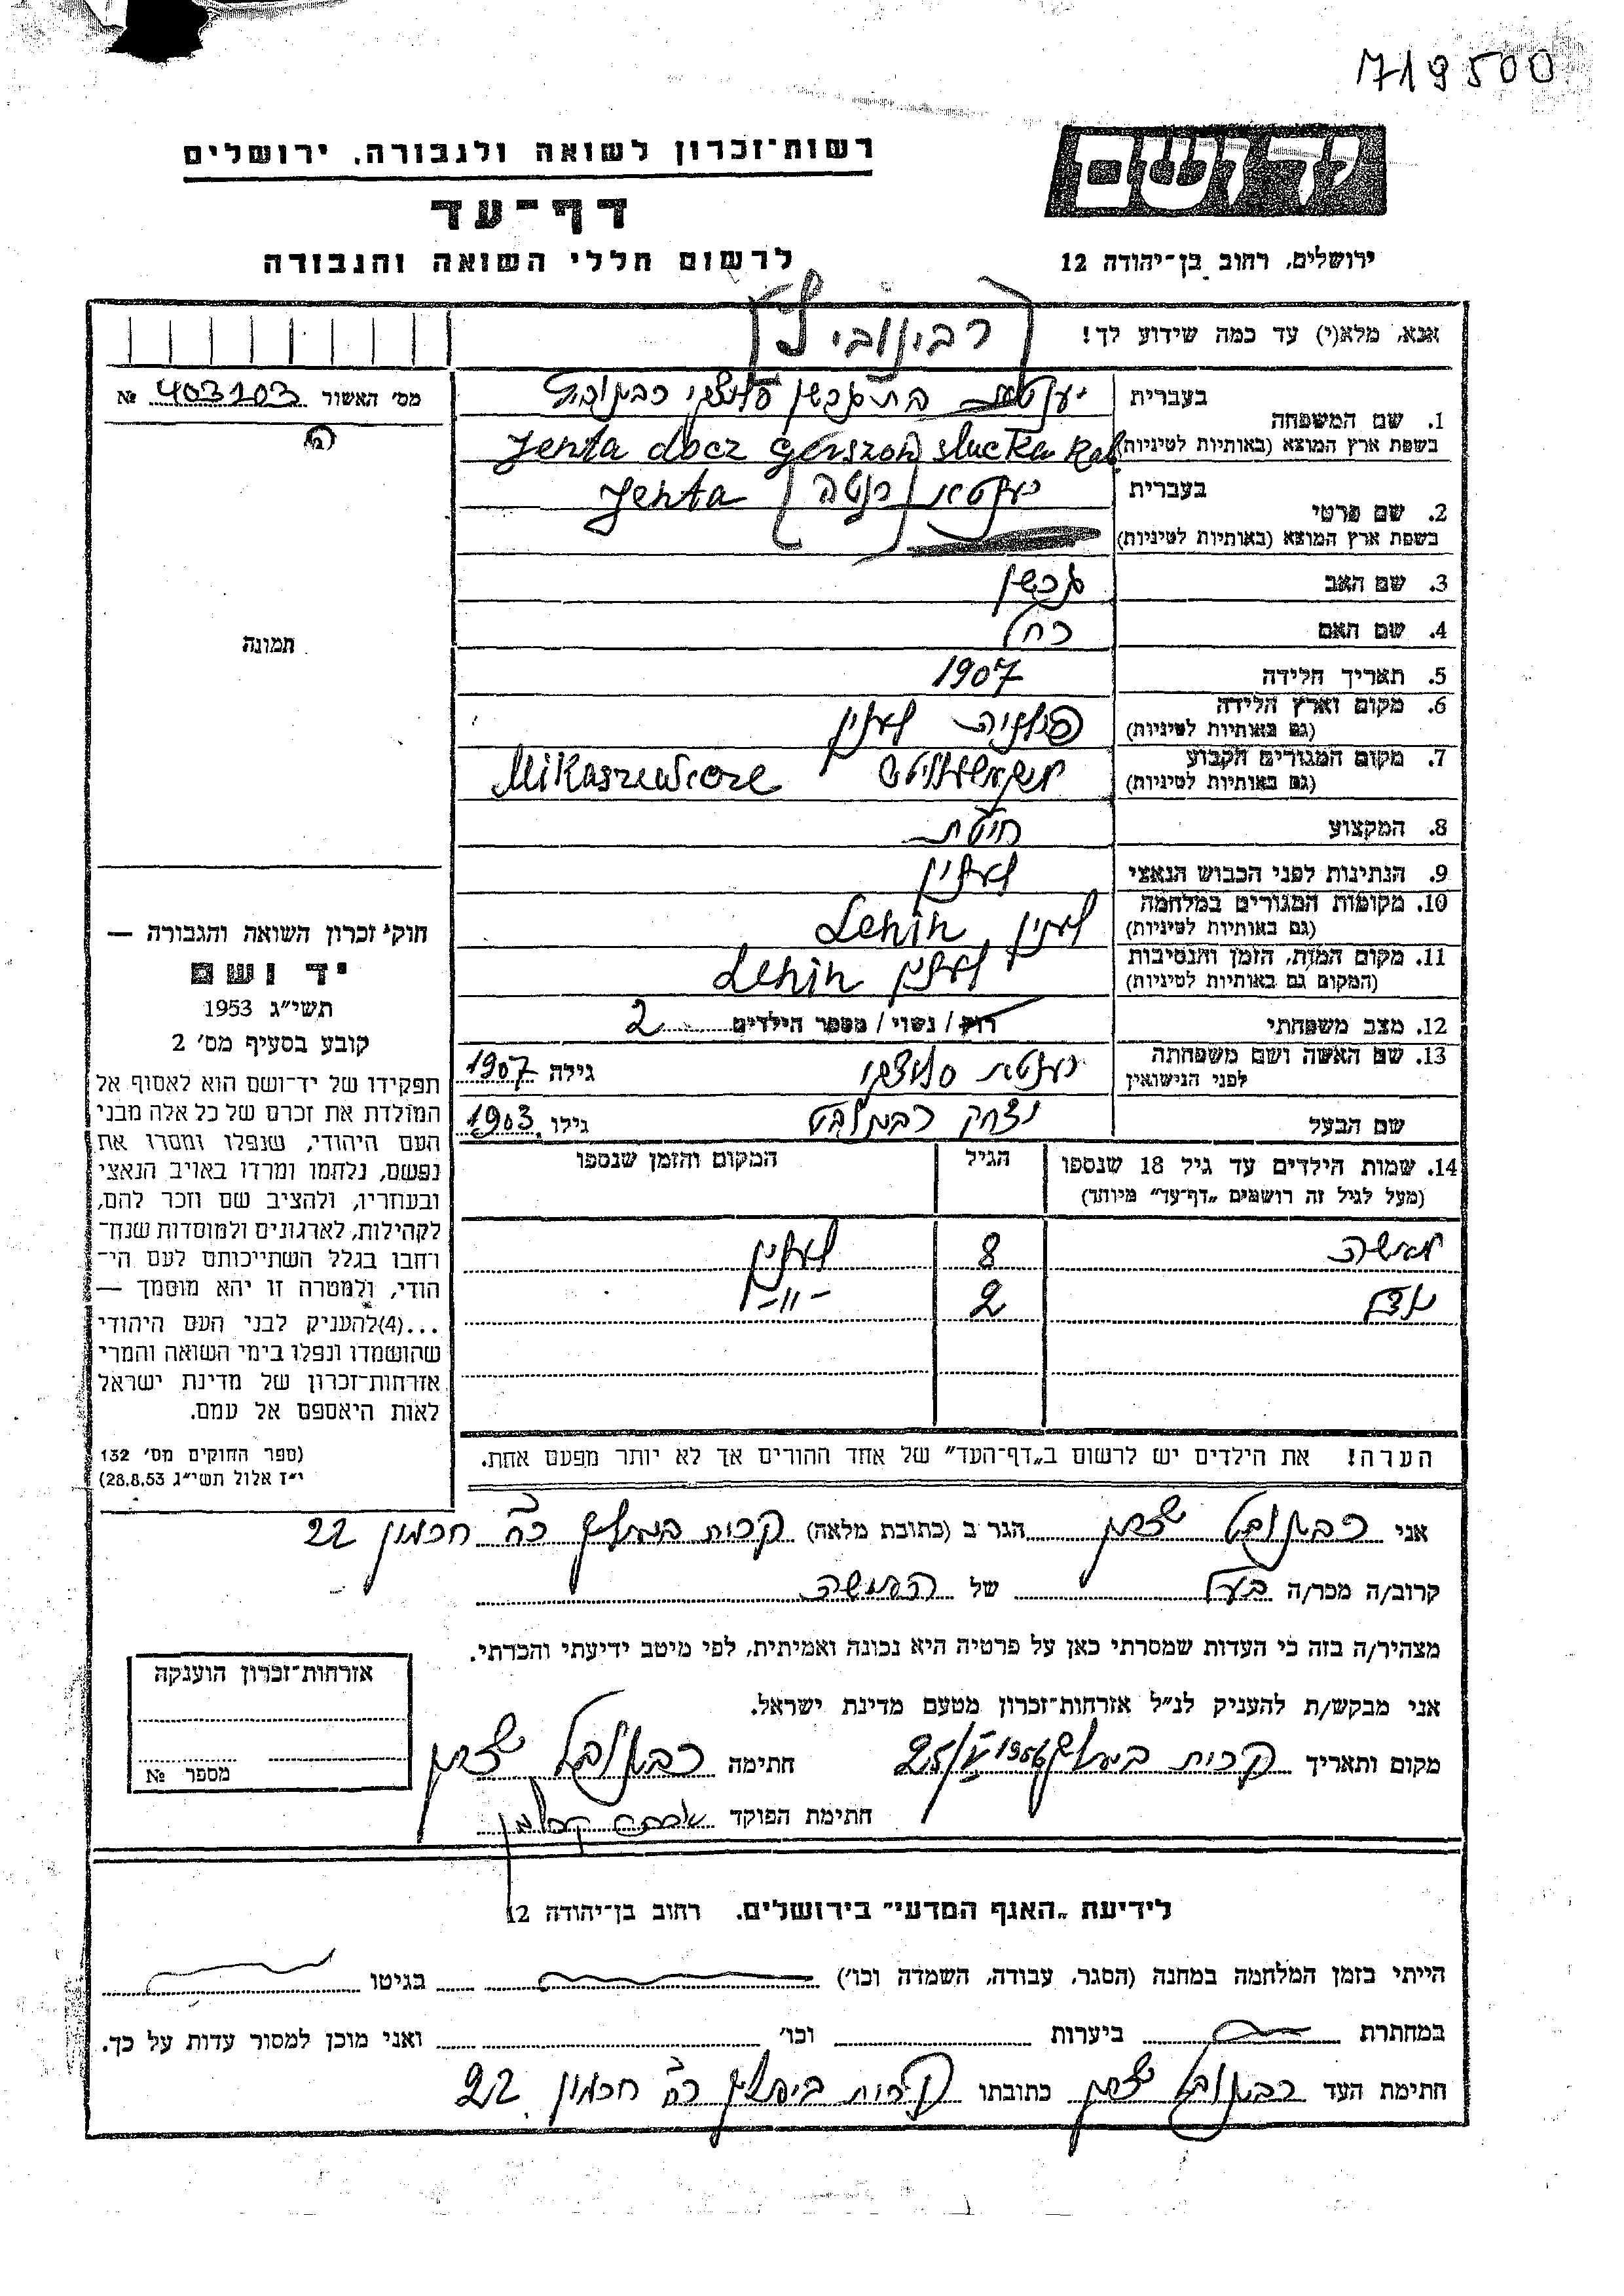 719500
רשות־זכרון לשואה ולגבורה, ירושלים
יד ושם
דף־עד
לרשום חללי השואה והגבורה
ירושלים, רחוב בן־יהודה 12
אנא, מלא(י) עד כמה שידוע לך!
רבינוביץ
מס׳ האשור № 403103
1. שם המשפחה
בעברית יענטא בת גרשון סלוצקי
בשפת ארץ המוצא (באותיות לטיניות) Jenta docz Gerszon slucka Rab
2. שם פרטי
בעברית יענטא (ינטה) Jenta
בשפת ארץ המוצא (באותיות לטיניות)
3. שם האב גרשון
4. שם האם רחל
5. תאריך הלידה 1907
6. מקום וארץ הלידה פולניה לענין
(גם באותיות לטיניות)
7. מקום המגורים הקבוע Mikaszewicze
(גם באותיות לטיניות)
8. המקצוע חייטת
9. הנתינות לפני הכבוש הנאצי לענין
10. מקומות המגורים במלחמה לענין, Lenin
(גם באותיות לטיניות)
11. מקום המות, הזמן והנסיבות לענין Lenin
(המקום גם באותיות לטיניות)
12. מצב משפחתי רוק / נשוי / מספר הילדים 2
13. שם האשה ושם משפחתה יענטא סלוצקי גילה 1907
לפני הנישואין
שם הבעל יצחק רבינוביץ גילו 1903
14. שמות הילדים עד גיל 18 שנספו הגיל המקום והזמן שנספו
(מעל לגיל זה רושמים „דף־עד״ מיוחד)
8 לענין
2 -״-
הערה! את הילדים יש לרשום ב„דף־העד״ של אחד ההורים אך לא יותר מפעם אחת.
תמונה
חוק זכרון השואה והגבורה —
יד ושם
תשי״ג 1953
קובע בסעיף מס׳ 2
תפקידו של יד־ושם הוא לאסוף אל
המולדת את זכרם של כל אלה מבני
העם היהודי, שנפלו ומסרו את
נפשם, נלחמו ומרדו באויב הנאצי
ובעוזריו, ולהציב שם וזכר להם,
לקהילות, לארגונים ולמוסדות שנח־
רחבו בגלל השתייכותם לעם הי־
הודי, ולמטרה זו יהא מוסמך —
...(4)להעניק לבני העם היהודי
שהושמדו ונפלו בימי השואה והמרי
אזרחות־זכרון של מדינת ישראל
לאות היאספם אל עמם.
(ספר החוקים מס׳ 132
י״ז אלול תשי״ג 28.8.53)
אני רבינוביץ יצחק הגר ב (כתובת מלאה) קרית ביאליק רח׳ 22
קרוב/ה מכר/ה בעל של האישה
מצהיר/ה בזה כי העדות שמסרתי כאן על פרטיה היא נכונה ואמיתית, לפי מיטב ידיעתי והכרתי.
אני מבקש/ת להעניק לנ״ל אזרחות־זכרון מטעם מדינת ישראל.
מקום ותאריך קרית ביאליק 25/V 1956 חתימה רבינוביץ יצחק
חתימת הפוקד
אזרחות־זכרון הוענקה
מספר №
לידיעת „האגף המדעי״ בירושלים, רחוב בן־יהודה 12
הייתי בזמן המלחמה במחנה (הסגר, עבודה, השמדה וכו׳) בגיטו
במחתרת ביערות וכו׳ ואני מוכן למסור עדות על כך.
חתימת העד רבינוביץ יצחק כתובתו קרית ביאליק רח׳ 22